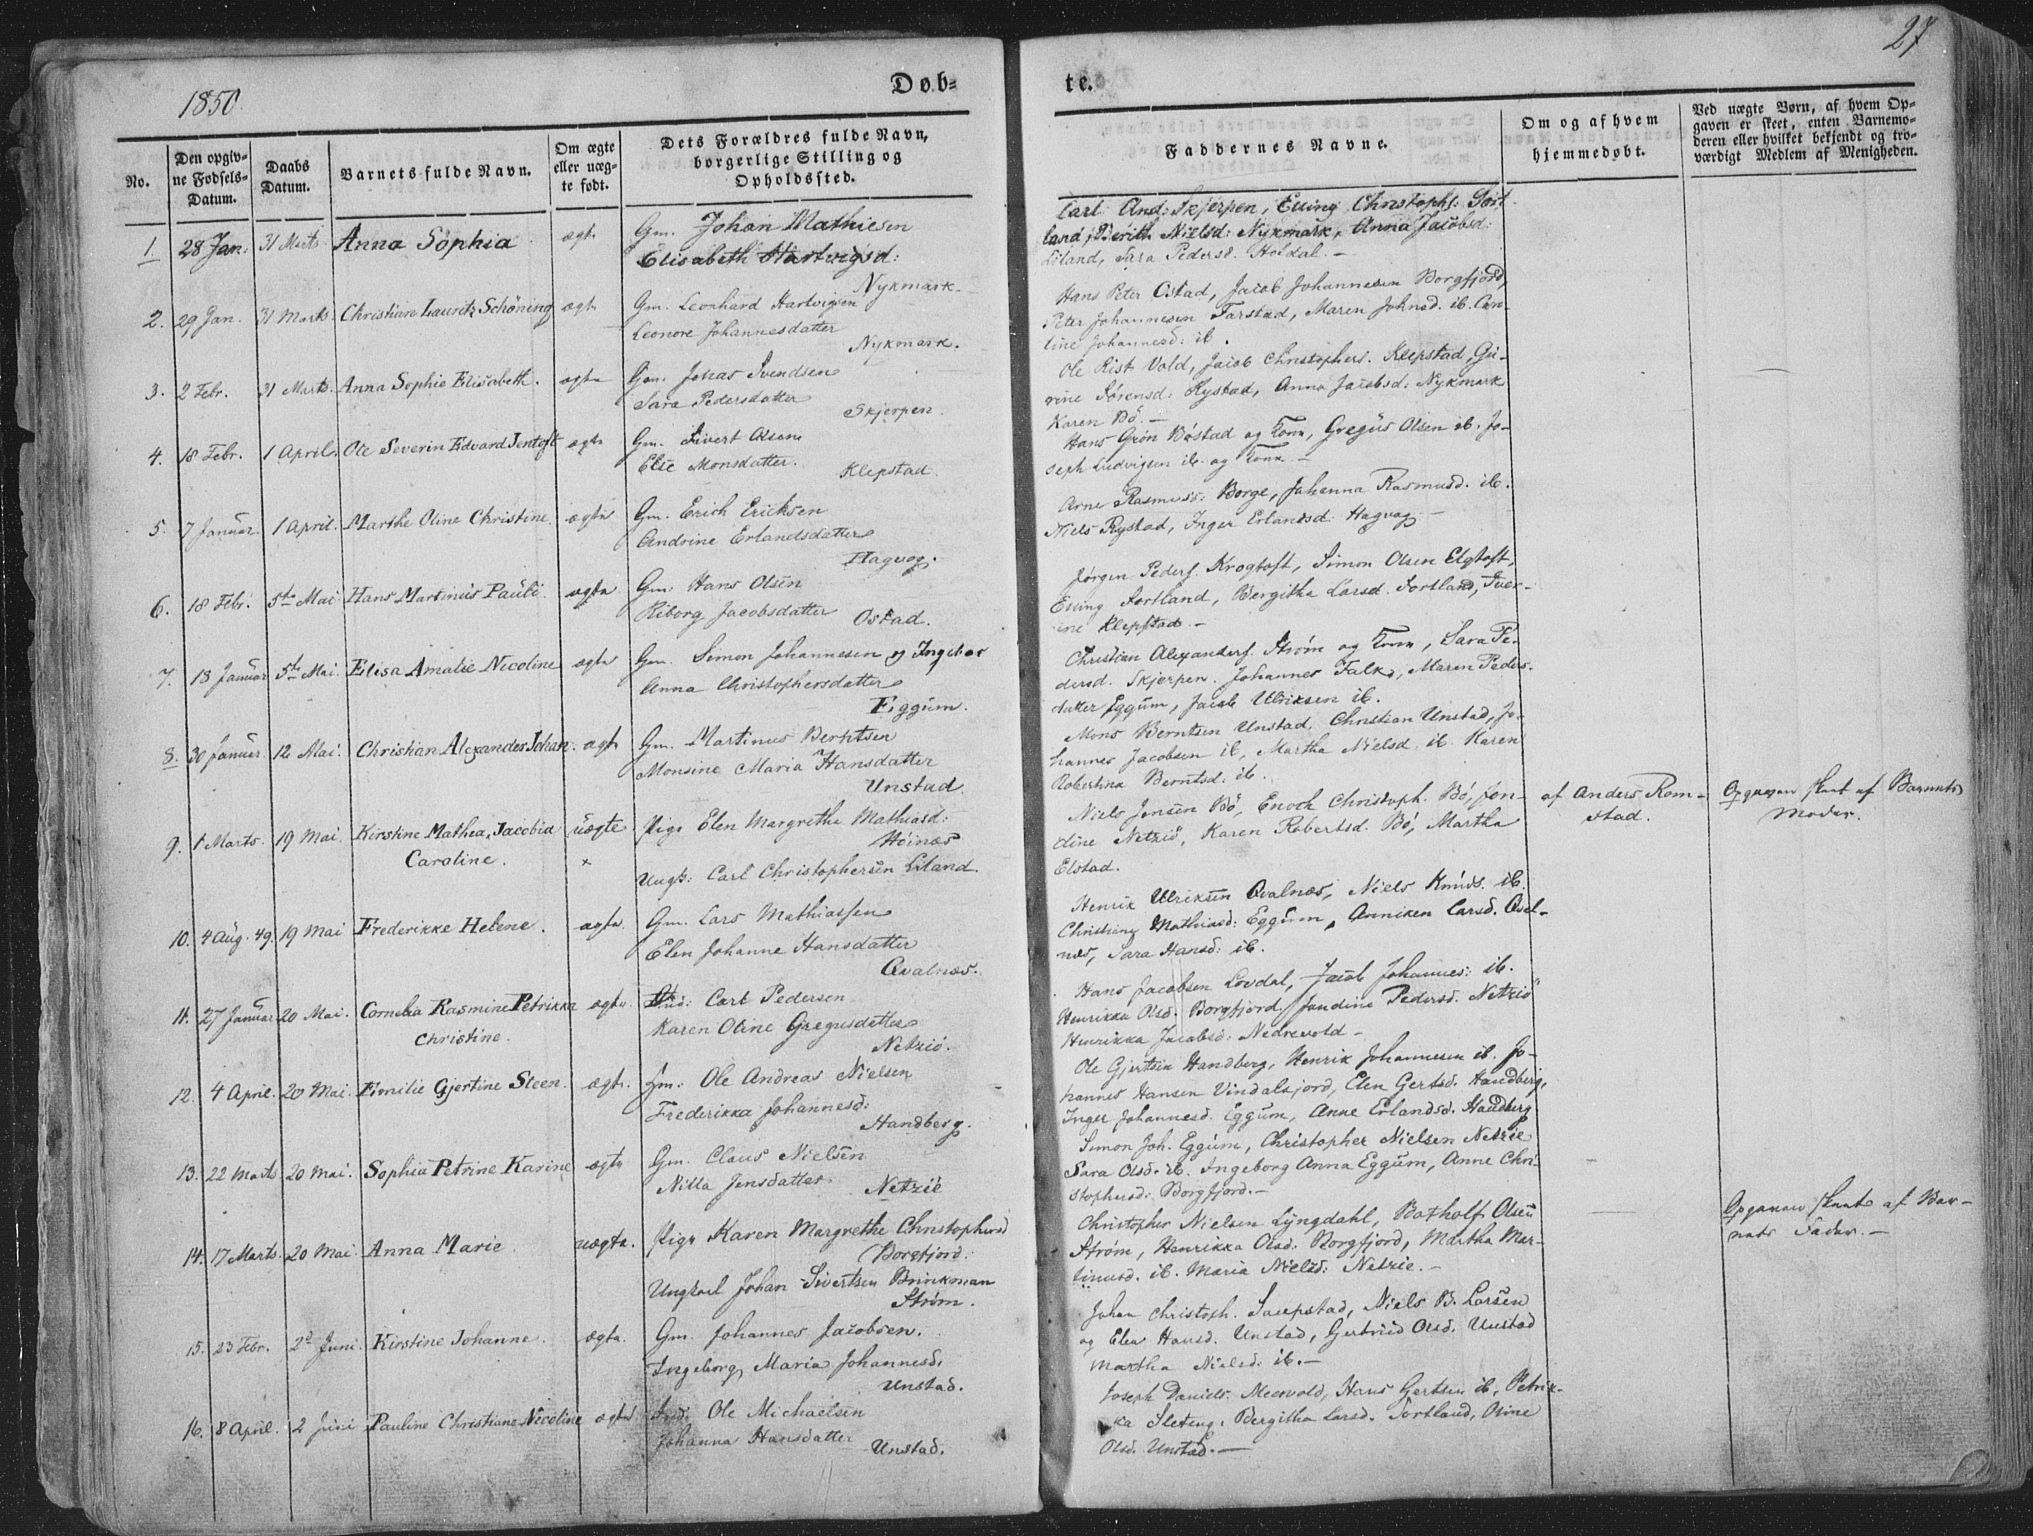 1850
Døb=
te.
27
No.
Den opgiv=
ne Fødsels=
Datum.
Daabs
Datum.
Barnets fulde Navn.
Om ægte
eller uæg=
te født.
Dets Forældres fulde Navn,
borgerlige Stilling og
Opholdssted.
Faddernes Navne.
Om og af hvem
hjemmedøbt.
Ved uægte Børn, af hvem Op=
gaven er skeet, enten Barnemo=
deren eller hvilket bekjendt og tro=
værdigt Medlem af Menigheden.
1. 28 Jan: 31 Marts Anna Sophia ægte Gm. Johan Mathiesen
Elisabeth Hartvigsd:
Nykmark.
Carl And: Skjerpen, Eving Christophs: Sort
land, Berith Nielsd: Nykmark, Anna Jacobsd:
Liland, Sara Pedersd. Holdal. -
2. 29 Jan. 31 Marts Christian Lauritz Schöning ægte Gm. Leonhard Hartvigsen
Leonore Johannesdatter
Nykmark.
Hans Peter Ostad, Jacob Johannesen Borgfjord,
Peter Johannesen Farstad, Maren Johnsd. ib.
line Johannesd: ib.
3. 2 Febr. 31 Marts Anna Sophie Elisabeth. ægte Gm. Jonas Svendsen
Sara Pedersdatter
Skjerpen.
Ole Rist Vold, Jacob Christophers. Klepstad, Gu-
rine Sørensd: Rystad, Anna Jacobsd: Nykmark
Karen Bö. -
4. 18 Febr. 1 April. Ole Severin Edvard Jentoft ægte Gm. Sivert Olsen
Else Monsdatter.
Klepstad.
Hans Grön Böstad og Kone, Gregus Olsen ib. Jo-
seph Ludvigsen ib. og Kone. -
5. 7 Januar 1 April. Marthe Oline Christine ægte Gm. Erich Ericksen
Andrine Erlandsdatter
Hagvog.
Arne Rasmuss: Borge, Johanna Rasmusd. ib.
Niels Rystad, Inger Erlandsd: Hagvag. -
6. 18 Febr. 5te Mai Hans Martinus Pauli. ægte Gm. Hans Olsen
Riborg Jacobsdatter Ostad.
Jørgen Peders. Krogtoft, Simon Olsen Elgtoft,
Eving Sortland, Bergitha Larsd. Sortland, Sver-
ine Klepstad. -
7. 13 Januar 5te Mai. Elisa Amalie Nicoline ægte Gm. Simon Johannesen og Ingebor
Anna Christophersdatter
Eggum.
Christian Alexanders. Strøm og Kone, Sara Pe-
dersd. Skjerpen. Johannes Falk, Maren Peders-
datter Eggum, Jacob Ulriksen ib.
8. 30 Januar 12 Mai. Christian Alexander Johan. ægte Gm. Martinus Berntsen
Monsine Maria Hansdatter
Unstad
Mons Berntsen Unstad, Christian Unstad, Jo-
hannes Jacobsen ib, Martha Nielsd. ib. Karen
Robertina Berntsd: ib.
9. 1 Marts. 19 Mai. Kirstine Mathea, Jacobia
Caroline.
uægte
×
Pige Elen Margrethe Mathiasd:
Höinæs
Ungk: Carl Christophersen Liland.
Niels Jensen Bö, Enoch Christoph. Bö,
dine Netziö, Karen Robertsd. Bö, Martha
Elstad.
af Anders Rom-
stad.
Opgaven skeet af Barnets
Moder.
10. 4 Aug. 49. 19 Mai Frederikke Helene. ægte. Gm. Lars Mathiassen
Elen Johanne Hansdatter
Qvalnæs.
Henrik Ulriksen Qvalnæs, Niels Knuds. ib.
Christine Mathiasd: Eggum, Anniken Larsd. Qval-
næs, Sara Hansd: ib.
11. 27 Januar 20 Mai. Cornelia Rasmine Petrikka
Christine.
ægte. Ind: Carl Pedersen
Karen Oline Gregusdatter
Netziö.
Hans Jacobsen Lovdal, Jacob Johannes: ib.
Henrikka Olsd. Borgfjord, Jandine Pedersd. Netziö
Henrikka Jacobsd: Nedrevold -
12. 4 April. 20 Mai. Emilie Gjertine Steen. ægte. Gm: Ole Andreas Nielsen
Frederikka Johannesd:
Handberg.
Ole Gjertsen Handberg, Henrik Johannesen ib. Jo-
hannes Hansen Vindalsfjord, Elen Gertsd. Handberg,
Inger Johannesd. Eggum, Anne Erlandsd. Handberg
13. 22 Marts 20 Mai. Sophia Petrine Karine ægte Gm. Claus Nielsen
Nilla Jensdatter.
Netzië
Simon Joh. Eggum, Christopher Nielsen Netzie
Sara Olsd. ib. Ingeborg Anna Eggum, Anne Chri-
stophersd: Borgfjord. -
14. 17 Marts. 20 Mai Anna Marie uægte. Pige Karen Margrethe Christophersd
Borgfjord.
Ungkarl Johan Sivertsen Brinkman
Strøm.
Christopher Nielsen Lyngdahl, Botholf Olsen
Strøm, Henrikka Olsd: Borgfjord, Martha Mar-
tinusd. ib. Maria Nielsd: Netzie. -
Opgaven skeet af Bar-
nets Fader. -
15. 23 Febr. 2d Juni Kirstine Johanne. ægte. Gm. Johannes Jacobsen.
Ingeborg Maria Johannesd.
Unstad.
Johan Christoph. Saupstad, Niels B. Larsen
og Elen Hansd. Unstad, Gertrud Olsd. Unstad
Martha Nielsd: ib. -
16. 8 April. 2 Juni Pauline Christiane Nicoline ægte Ind: Ole Michaelsen
Johanna Hansdatter
Unstad.
Joseph Daniels. Meervold, Hans Gertsen ib, Petrik-
ka Sleteng, Bergitha Larsd. Sortland, Oline
Olsd. Unstad. -